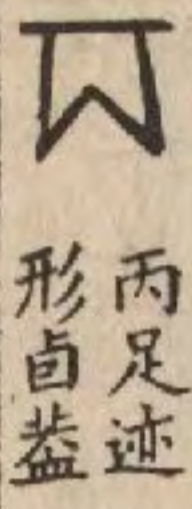 丙足迹
形卣蓋